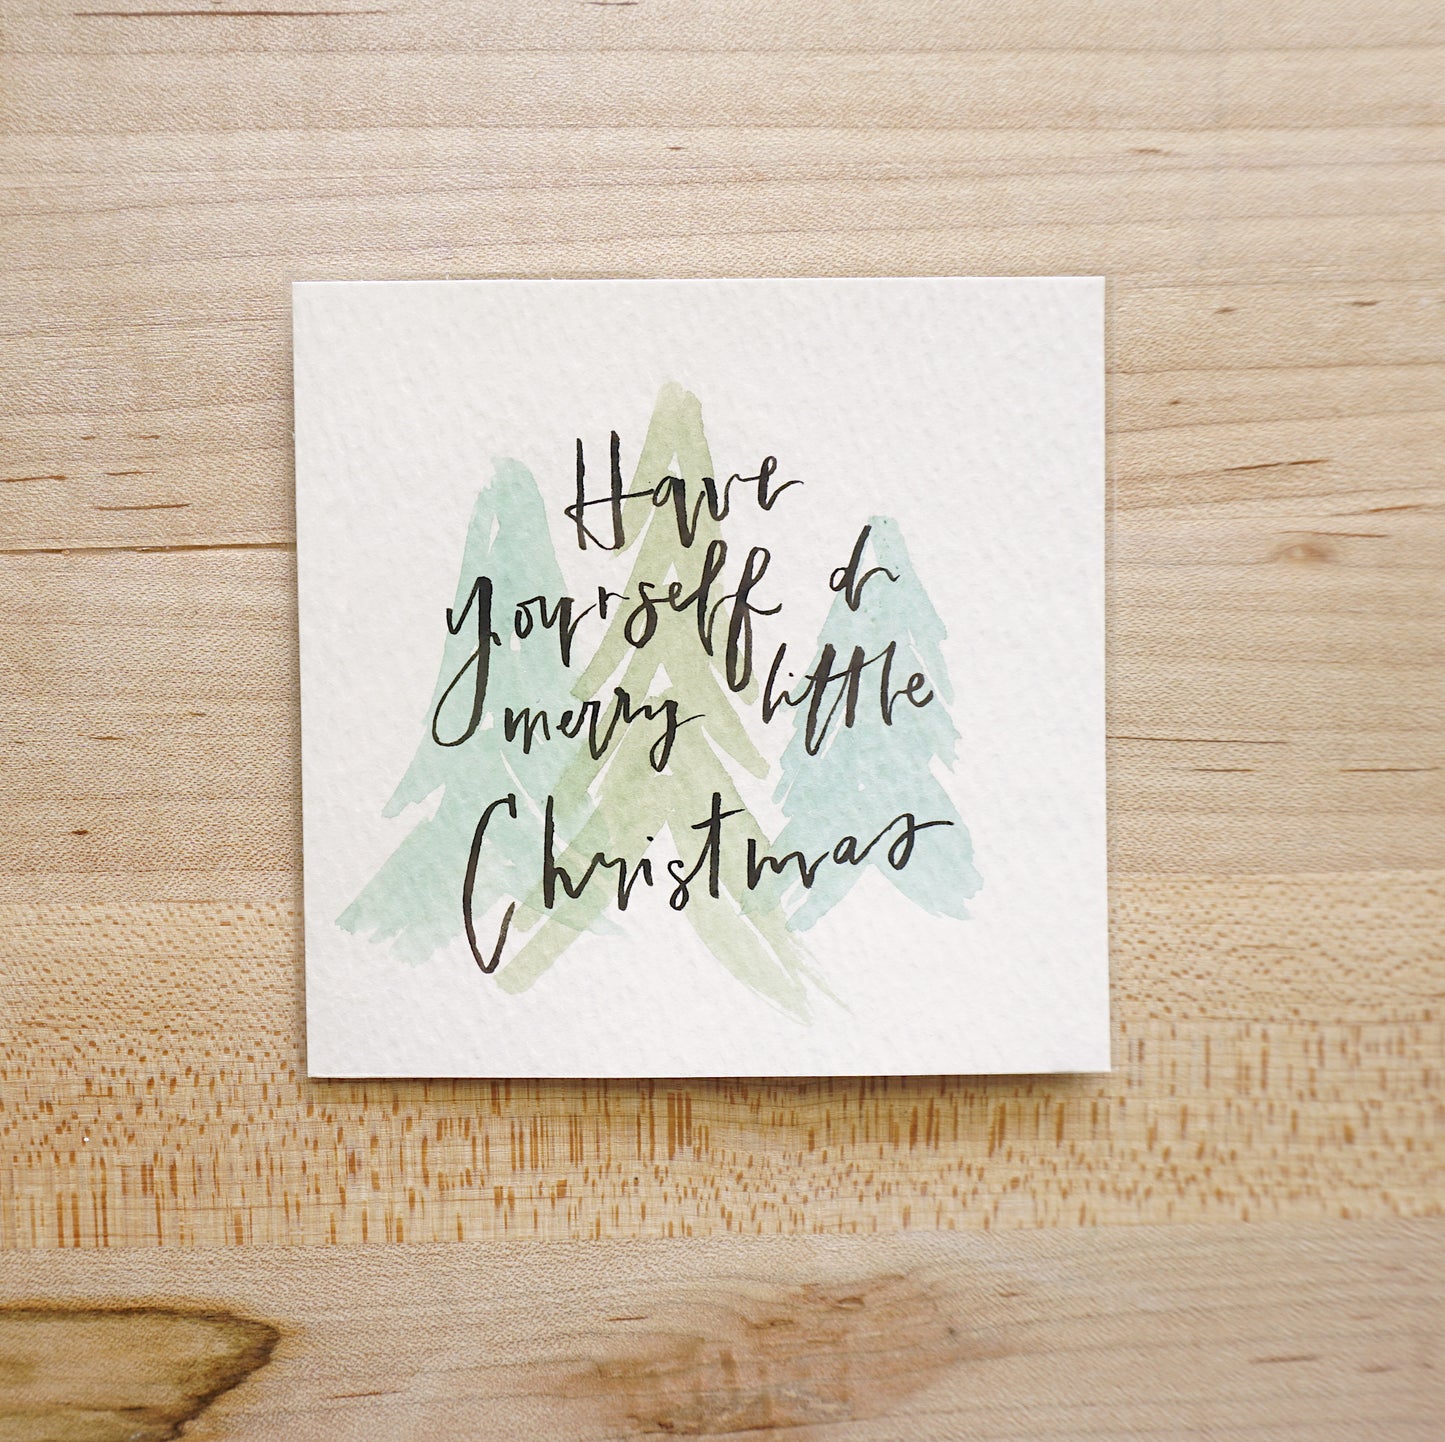 Have
yourself a
merry little
Christmas